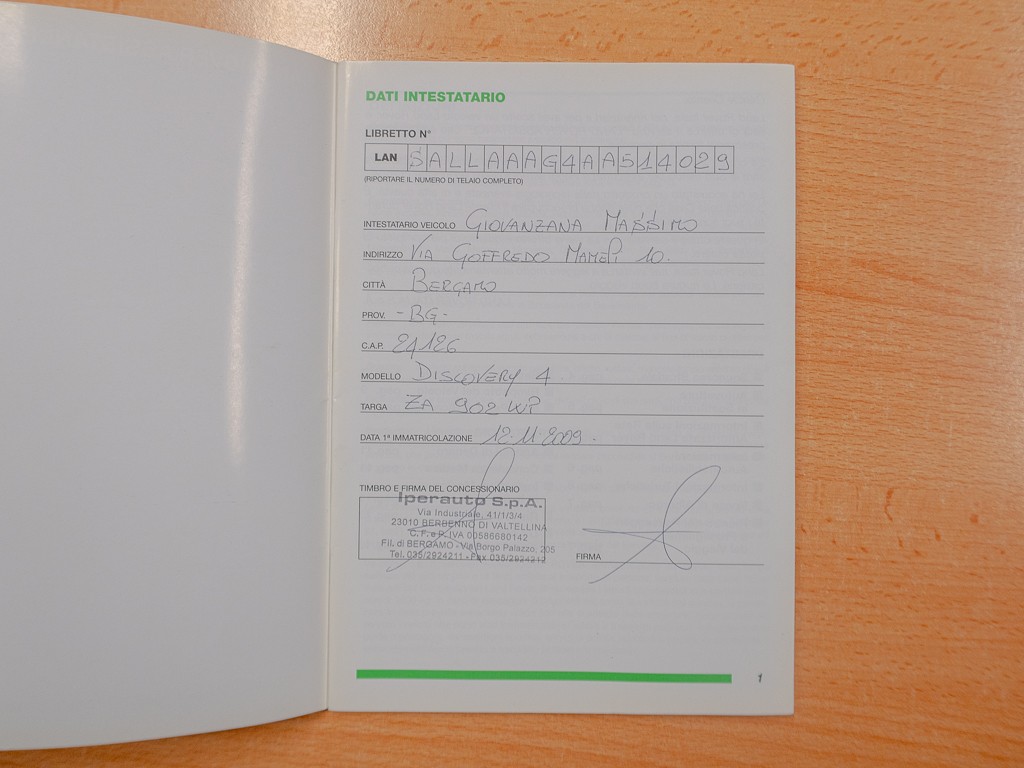 DATI INTESTATARIO
LIBRETTO N°
LAN SALLAAAG4AA514029
(RIPORTARE IL NUMERO DI TELAIO COMPLETO)
INTESTATARIO VEICOLO GIOVANZANA MASSIMO
INDIRIZZO VIA GOFFREDO MAMELI 10.
CITTÀ BERGAMO
PROV. -BG-
C.A.P. 24126
MODELLO DISCOVERY 4
TARGA ZA 902 WP
DATA 1ª IMMATRICOLAZIONE 12.11.2009.
TIMBRO E FIRMA DEL CONCESSIONARIO
Iperauto S.p.A.
Via Industriale, 41/1/3/4
23010 BERBENNO DI VALTELLINA
C.F. e P. IVA 00586680142
Fil. di BERGAMO - Via Borgo Palazzo, 205
Tel. 035/2924211 - Fax 035/2924212
FIRMA
1